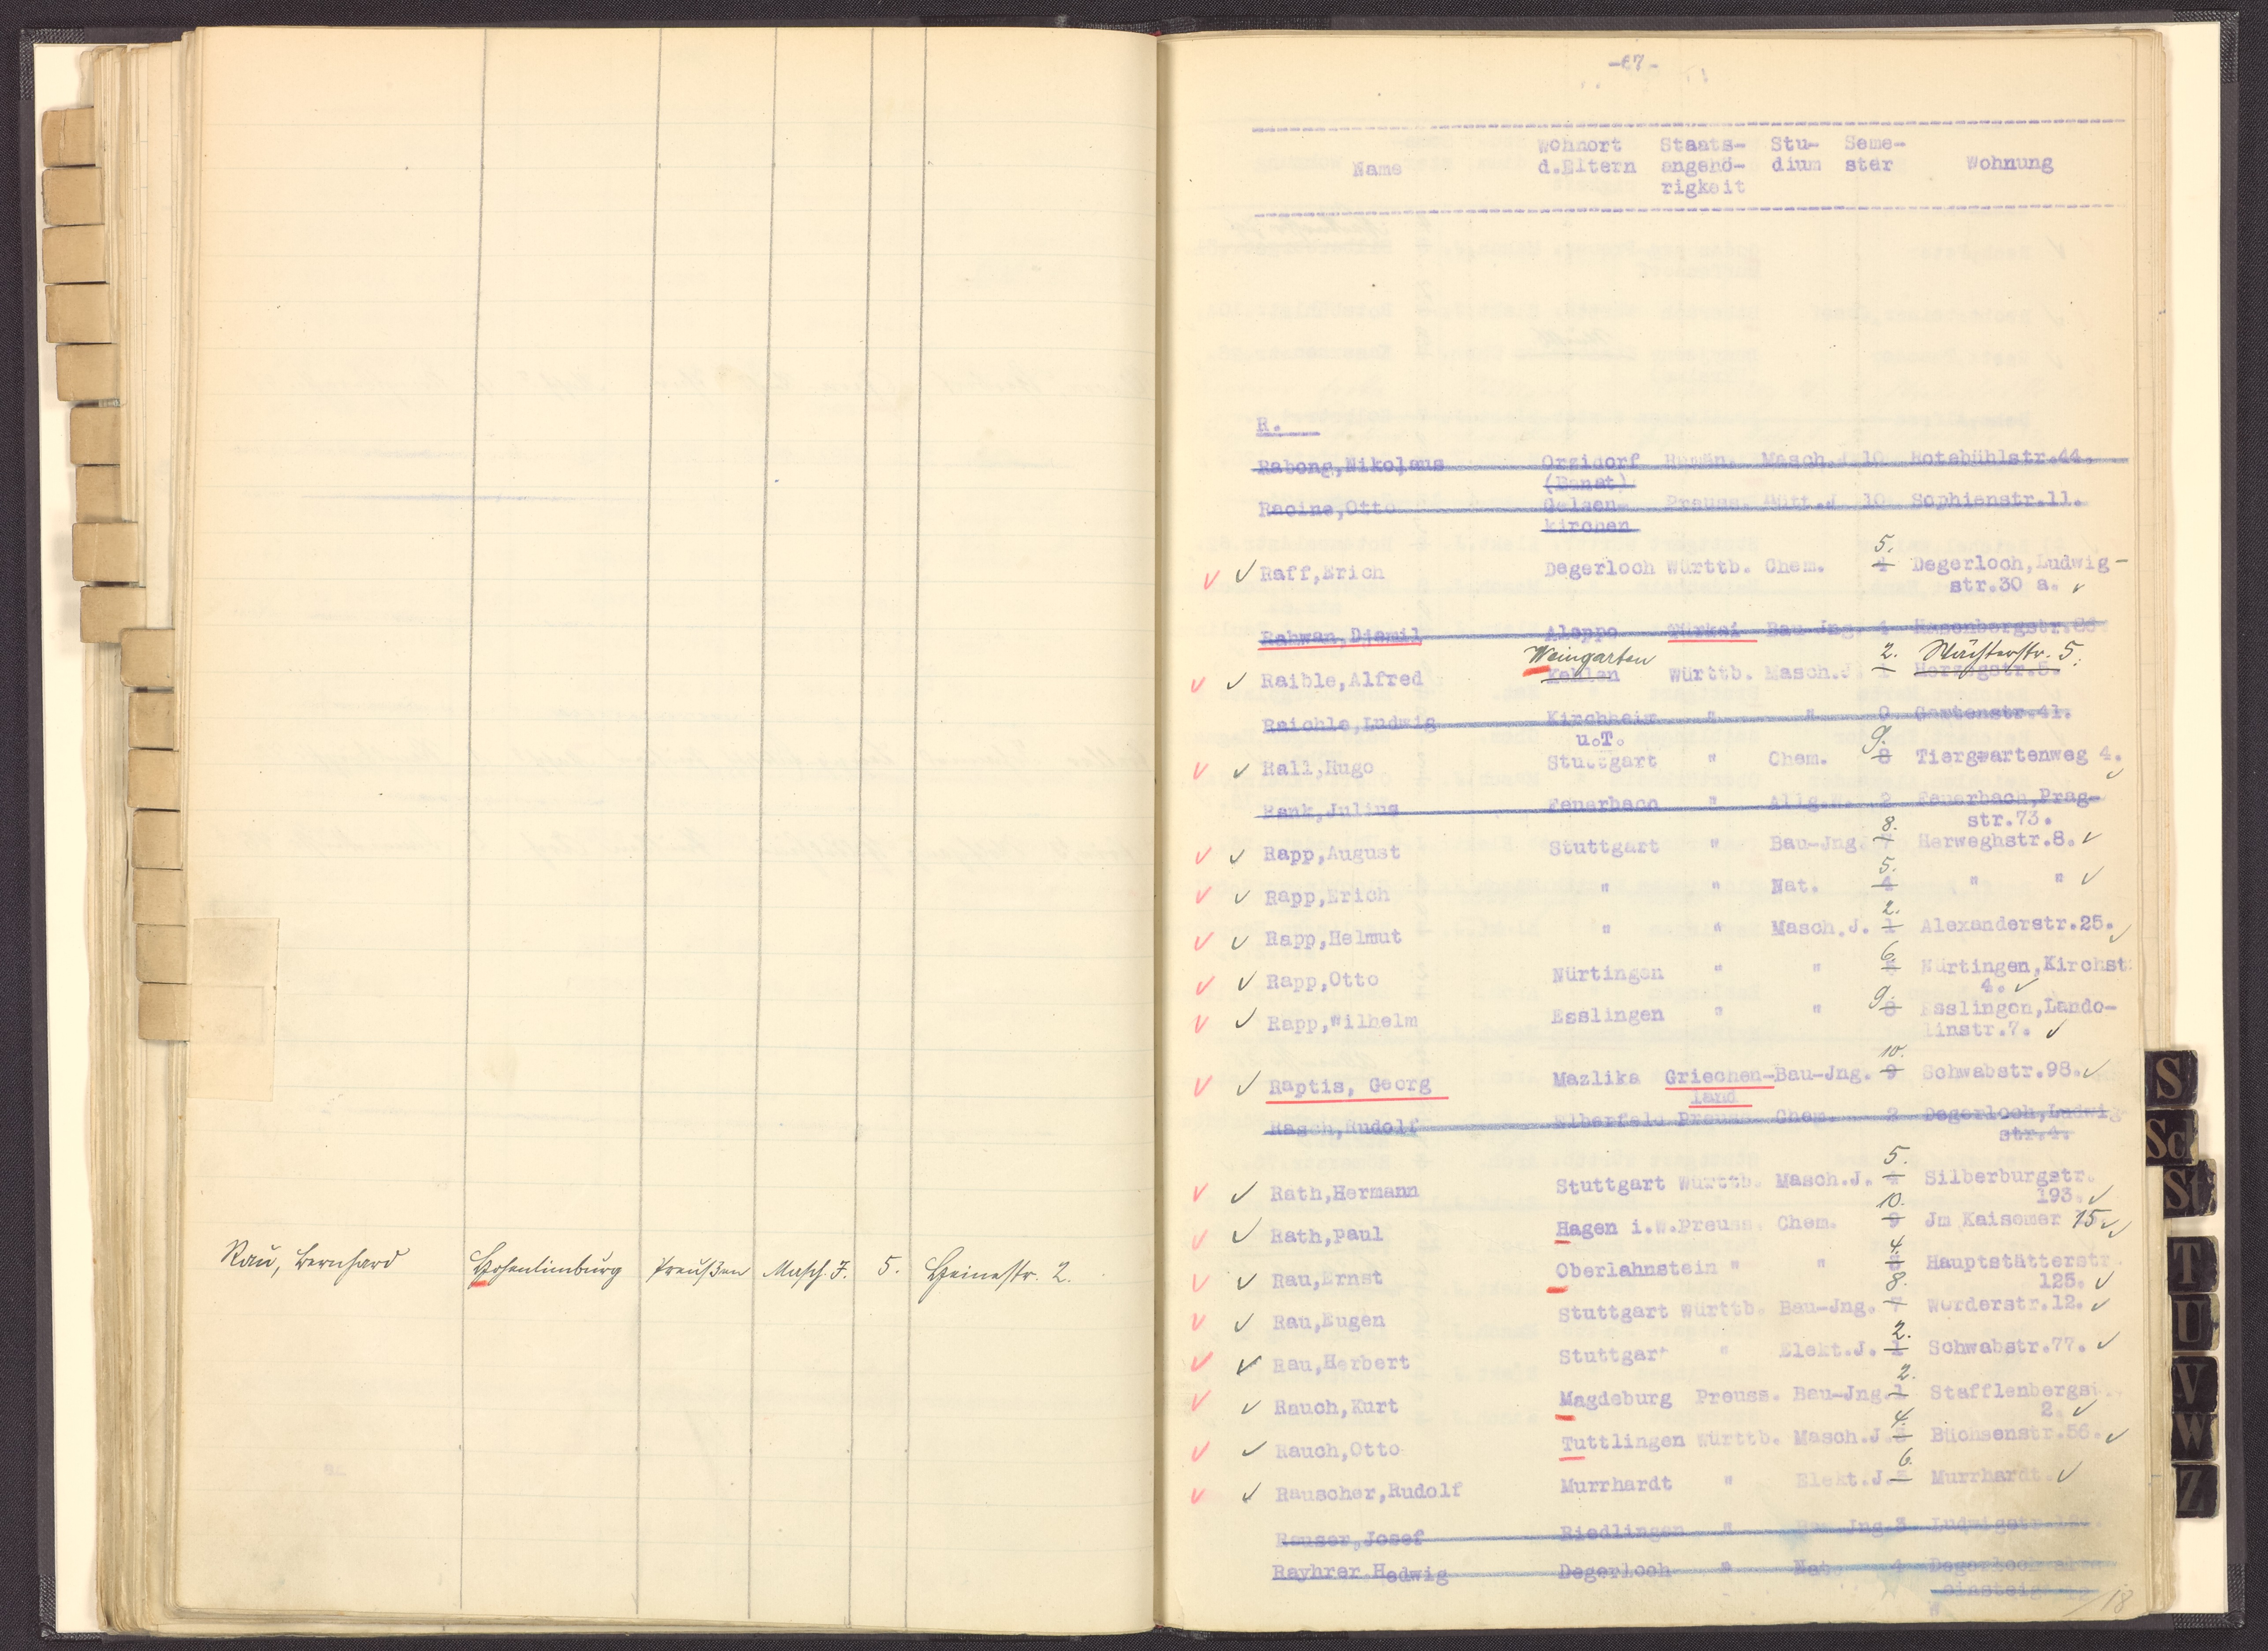 Rau, Bernhard Hohenlimburg Preußen Masch. J. 5. Heinestr. 2.
-67-
Wohnort Staats- Stu- Seme-
Name d.Eltern angehö- dium ster Wohnung
rigkeit
R.
Rabong,Nikolaus Orzidorf Rumän. Masch.J 10 Rotebühlstr.44.
(Banat)
Racine,Otto Gelsen- Preuss. Hütt.J 10 Sophienstr.11.
kirchen
5.
Raff,Erich Degerloch Württb. Chem. 4 Degerloch,Ludwig-
str.30 a.
Rahwan,Djemil Aleppo Türkei Bau-Jng. 4 Hasenbergstr.
Weingarten 2. 5.
Raible,Alfred Kehlen Württb. Masch.J 1 Herzogstr.5.
Raichle,Ludwig Kirchheim " " 9 Gartenstr.41.
u.T. 9.
Rall,Hugo Stuttgart " Chem. 8 Tiergartenweg 4.
Rank,Julius Feuerbach " Allg.W. 2 Feuerbach,Prag-
str.73.
8.
Rapp,August Stuttgart " Bau-Jng. 7 Herweghstr.8.
5.
Rapp,Erich " " Nat. 4 " "
2.
Rapp,Helmut " " Masch.J. 1 Alexanderstr.25.
6.
Rapp,Otto Nürtingen " " 5 Nürtingen,Kirchst
4.
9.
Rapp,Wilhelm Esslingen " " 8 Esslingen,Lando-
linstr.7.
10.
Raptis, Georg Mazlika Griechen-Bau-Jng. 9 Schwabstr.98.
land
Rasch,Rudolf Elberfeld Preuss. Chem. 2 Degerloch,Ludwig
str.4.
5.
Rath,Hermann Stuttgart Württb. Masch.J. 4 Silberburgstr.
193.
10.
Rath,Paul Hagen i.W.Preuss. Chem. 9 Jm Kaisemer 15.
4.
Rau,Ernst Oberlahnstein " " 3 Hauptstätterstr
125.
8.
Rau,Eugen Stuttgart Württb. Bau-Jng. 7 Wörderstr.12.
2.
Rau,Herbert Stuttgart " Elekt.J. 1 Schwabstr.77.
2.
Rauch,Kurt Magdeburg Preuss. Bau-Jng.1 Stafflenbergst
2.
4.
Rauch,Otto Tuttlingen Württb. Masch.J.3 Büchsenstr.56.
6.
Rauscher,Rudolf Murrhardt " Elekt.J.5 Murrhardt.
Rauser,Josef Riedlingen " Bau-Jng.3 Ludwigstr.
Rayhrer Hedwig Degerloch " Nat. 4 Degerloch
18
S
Sch
St
T
U
V
W
Z